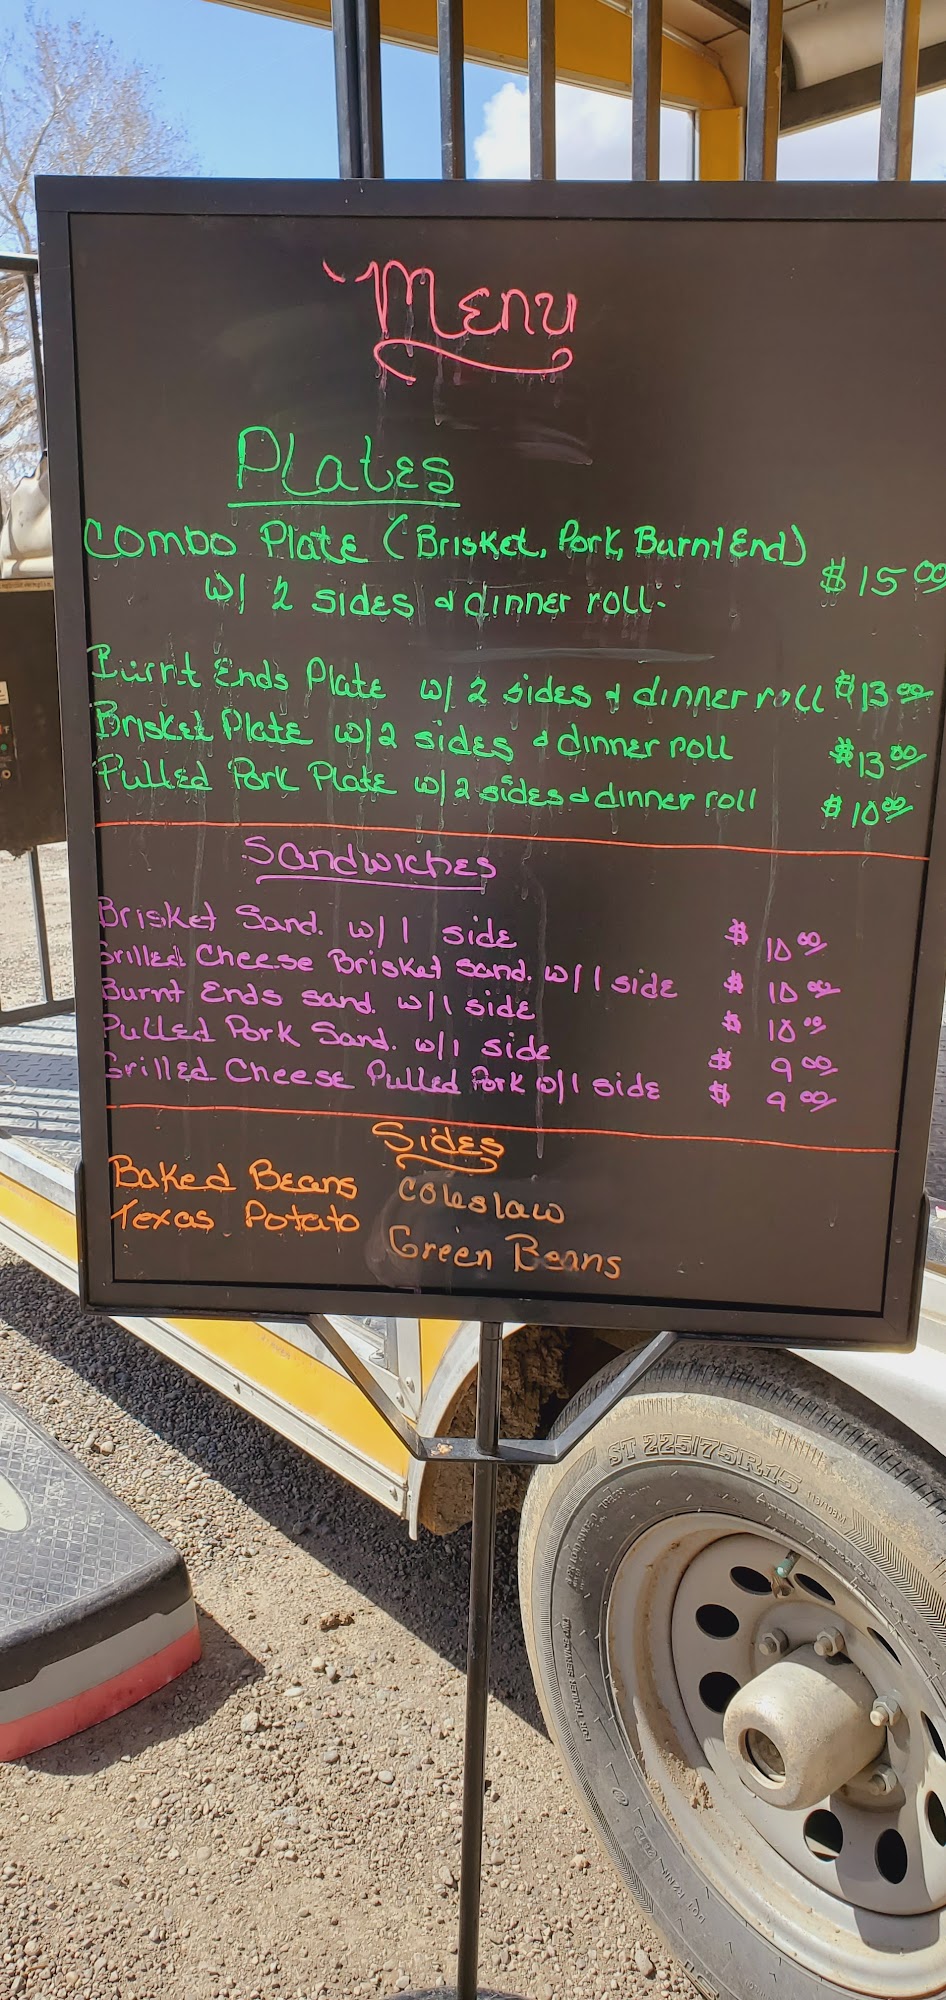 Menu
Plates
Combo Plate (Brisket, Pork, Burnt End)
w/ 2 sides & dinner roll. $15.00
Burnt Ends Plate w/ 2 sides & dinner roll $13.00
Brisket Plate w/2 sides & dinner roll $13.00
Pulled Pork Plate w/2 sides & dinner roll $10.00
Sandwiches
Brisket Sand. w/1 side $10.00
Grilled Cheese Brisket Sand. w/1 side $10.00
Burnt Ends sand. w/1 side $10.00
Pulled Pork Sand. w/1 side $9.00
Grilled Cheese Pulled Pork w/1 side $9.00
Sides
Baked Beans Coleslaw
Texas Potato Green Beans
ST 225/75R15